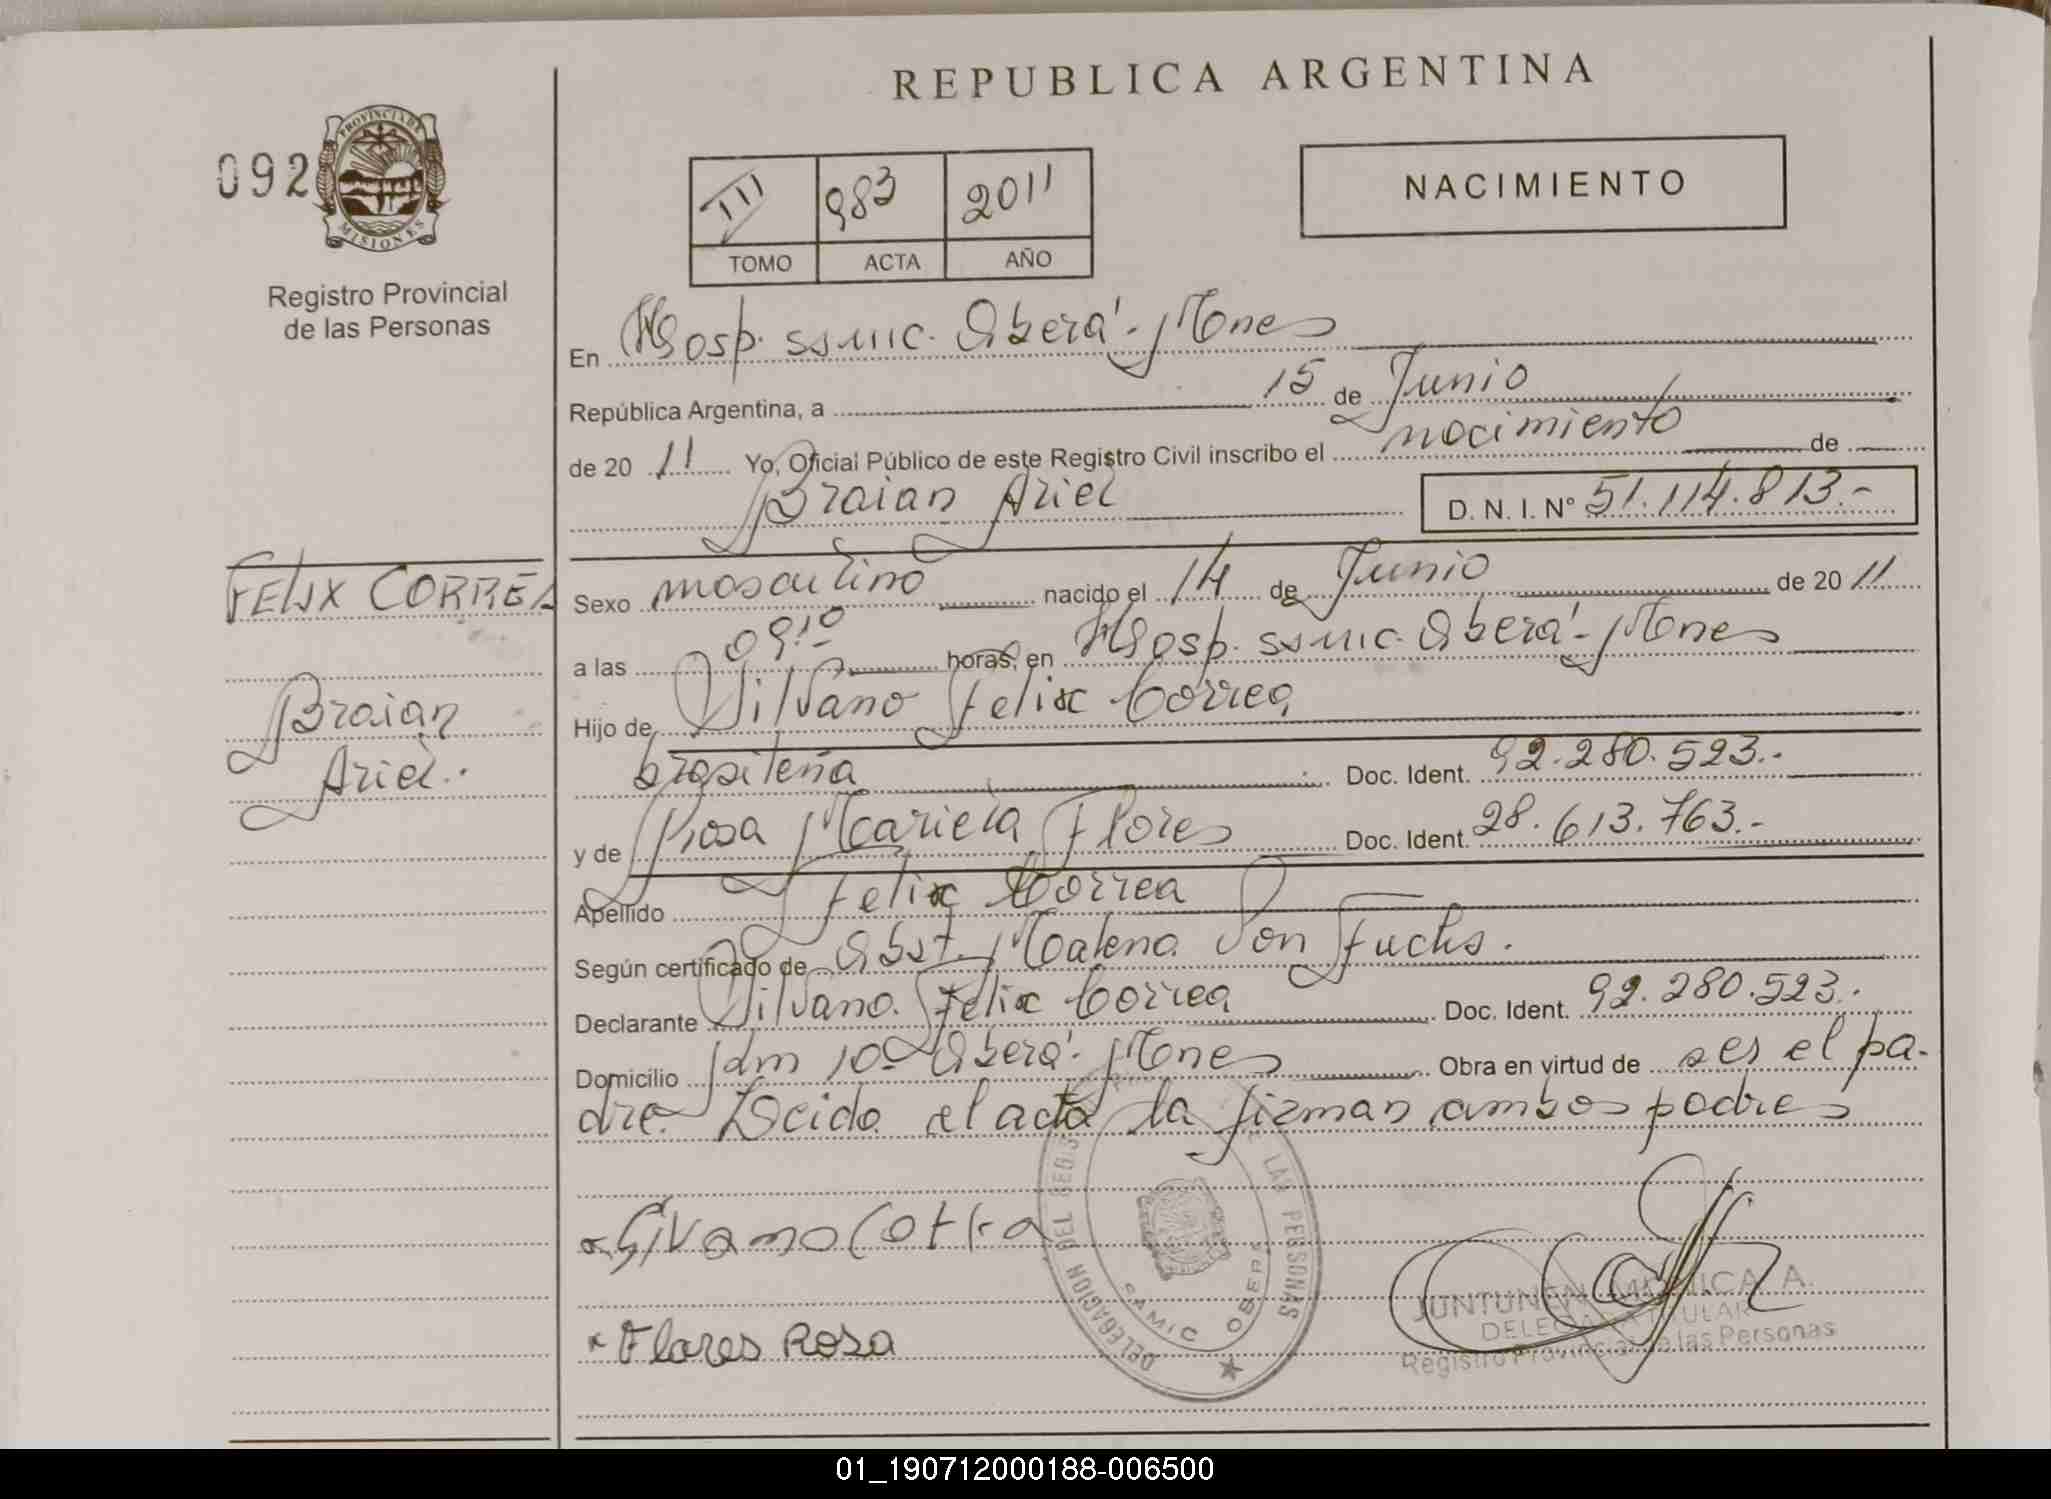 REPUBLICA ARGENTINA
092
PROVINCIA DE
MISIONES
Registro Provincial
de las Personas
III 983 2011
TOMO ACTA AÑO
NACIMIENTO
En Hosp. ssmic. Oberá - Mnes
República Argentina, a 15 de Junio
de 20 11 Yo, Oficial Público de este Registro Civil inscribo el nacimiento de
Braian Ariel D. N. I. N° 51.114.813.-
FELIX CORREA
Braian
Ariel.-
Sexo masculino nacido el 14 de Junio de 20 11
a las 09:10 horas, en Hosp. ssmic. Oberá - Mnes
Hijo de Silvano Felix Correa
brasileña Doc. Ident. 92.280.523.-
y de Rosa Mariela Flores Doc. Ident. 28.613.763.-
Apellido Felix Correa
Según certificado de Obst. Malena Von Fuchs.
Declarante Silvano Felix Correa Doc. Ident. 92.280.523.-
Domicilio Km 10 Oberá - Mnes Obra en virtud de ser el pa-
dre. Leida el acta la firman ambos padres
Silvano Correa
x Flores Rosa
DELEGACION DEL REGISTRO LAS PERSONAS
SAMIC OBERA
JUNTUNEN MONICA A.
DELEGADA TITULAR
Registro Provincial de las Personas
01_190712000188-006500